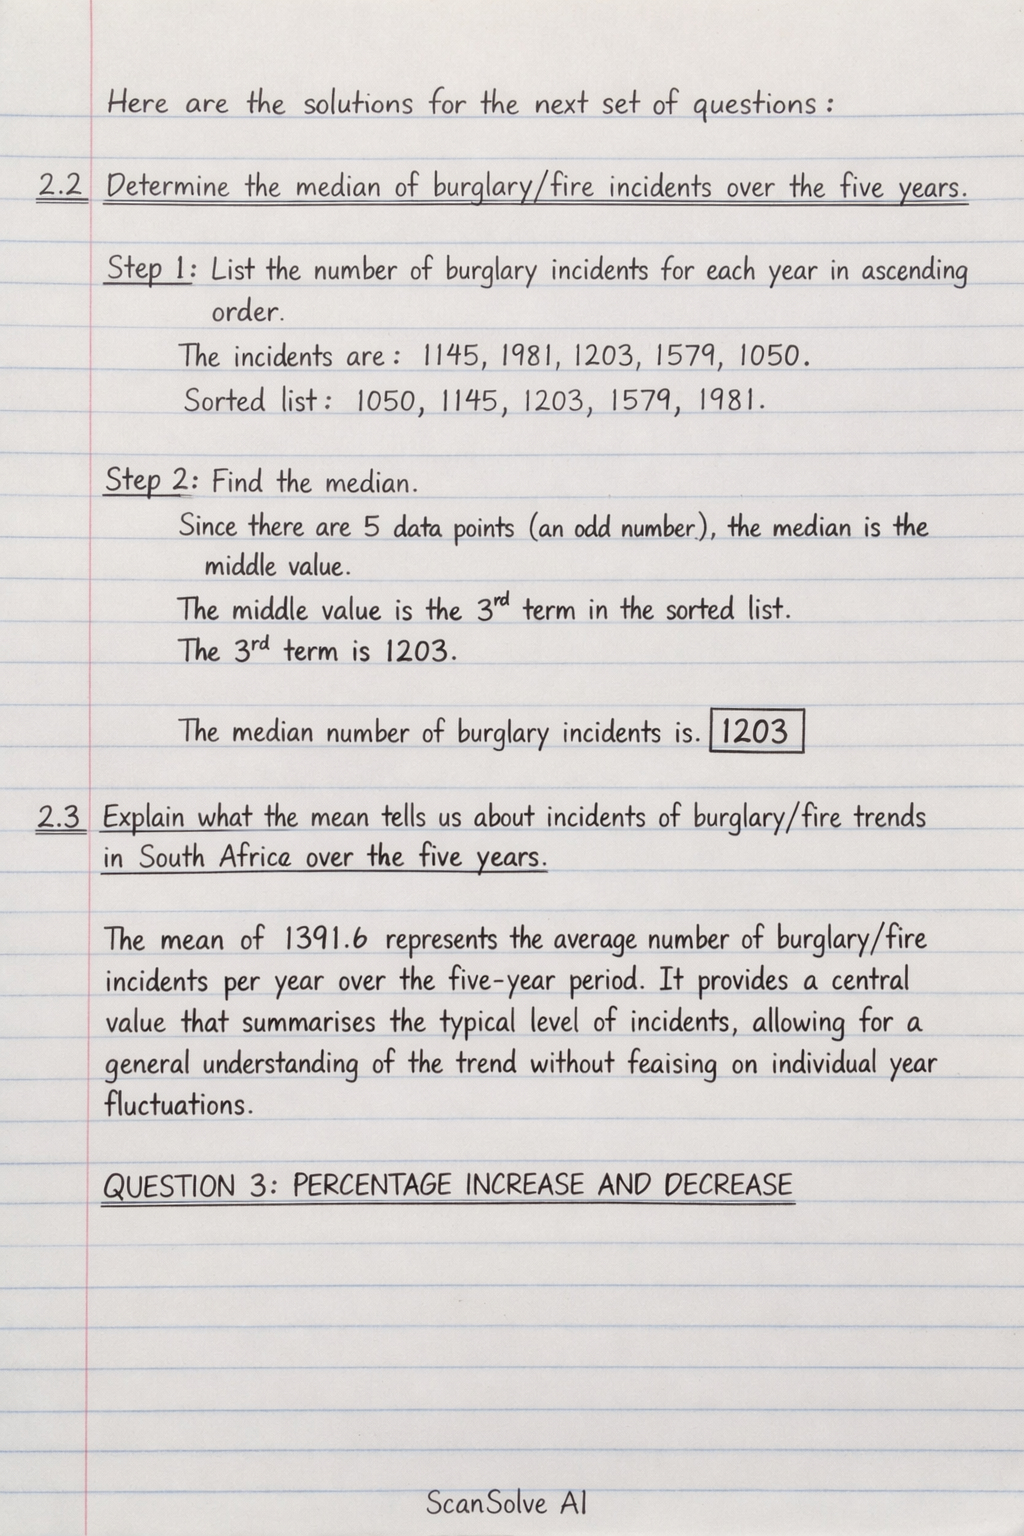 Here are the solutions for the next set of questions :
2.2 Determine the median of burglary/fire incidents over the five years.
Step 1: List the number of burglary incidents for each year in ascending
order.
The incidents are : 1145, 1981, 1203, 1579, 1050.
Sorted list : 1050, 1145, 1203, 1579, 1981.
Step 2: Find the median.
Since there are 5 data points (an odd number), the median is the
middle value.
The middle value is the 3rd term in the sorted list.
The 3rd term is 1203.
The median number of burglary incidents is. 1203
2.3 Explain what the mean tells us about incidents of burglary/fire trends
in South Africa over the five years.
The mean of 1391.6 represents the average number of burglary/fire
incidents per year over the five-year period. It provides a central
value that summarises the typical level of incidents, allowing for a
general understanding of the trend without feaising on individual year
fluctuations.
QUESTION 3: PERCENTAGE INCREASE AND DECREASE
ScanSolve AI